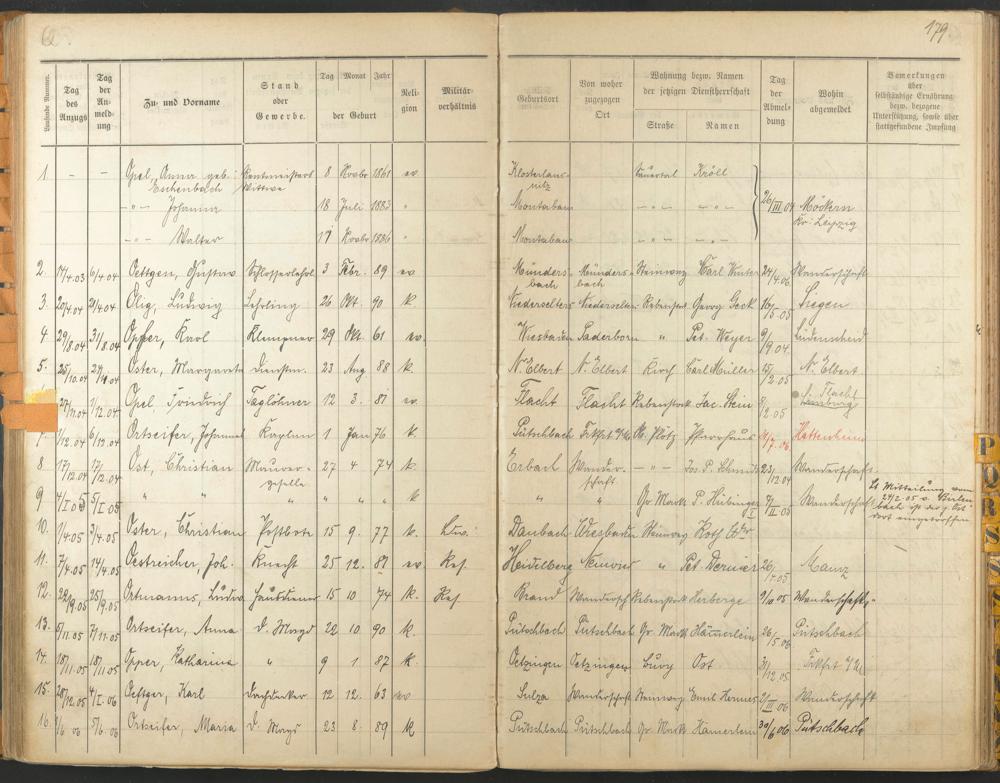 179.
Laufende Nummer.
Tag des Anzugs
Tag der Anmeldung
Zu- und Vorname
Stand oder Gewerbe.
Tag Monat Jahr
der Geburt
Religion
Militärverhältnis
Geburtsort
Von woher zugezogen Ort
Wohnung bezw. Namen der jetzigen Dienstherrschaft
Straße Namen
Tag der Abmeldung
Wohin abgemeldet
Bemerkungen über selbständige Ernährung bezw. bezogene Unterstützung, sowie über stattgefundene Impfung
1. – – Opel, Anna geb. Rentmeisters 8 Novbr 1861 ev Klosterlausnitz Sauertal Kröll
Eschenbach Wittwe
-"- Johanna 18 Juli 1883 " Montabaur -"- -"- 26/III 04 Möckern
Kr. Leipzig
-"- Walter 17 Novbr 1886 " Montabaur -"- -"-
2. 14/4.03 6/4.04 Oettgen, Gustav Schlosserlehrl 3 Febr. 89 ev Mündersbach Mündersbach Steinweg Carl Winter 24/4.06 Wanderschaft
3. 20/4.04 21/4.04 Ohg, Ludwig Lehrling 26 Okt. 90 k. Niederselters Niederselters Rebenstock Georg Geck 16/5.05 Siegen
4. 29/8.04 31/8.04 Karl Klempner 29 Okt. 61 ev. Wiesbaden Paderborn " Pet. Weyer 9/9.04 Lüdenscheid
5. 25/10.04 27/10.04 Oster, Margareta Dienstm. 23 Aug 88 k N. Elbert N. Elbert Kirch Carl Müller 15/2.05 N. Elbert
27/11.04 1/12.04 Opel Friedrich Taglöhner 12 3. 87 ev Flacht Flacht Rebenstock Jac. Stein 8/2.05 Flacht
Limburg
7. 1/12.04 6/12.04 Ortseifer, Johannes Kaplan 1 Jan 76 k. Pütschbach Frkfrt a/M. Plötz Pfarrhaus 06 Hattenheim
8. 17/12.04 17/12.04 Ost, Christian Maurergeselle 27 4 74 k. Erbach Wanderschaft -"- Jos. P. Schmidt 23/12.04 Wanderschaft
9 4/I 05 5/I 05 " " " " " k " " Gr. Markt P. Hübinger II 05 Wanderschaft Lt Mitteilung vom
24/2.05
dort eingetroffen
10. 1/4.05 3/4.05 Oster, Christian Postbote 15 9. 77 k. Daubach Wiesbaden Steinweg Roth
11. 7/4.05 14/4.05 Oestreicher, Joh. Knecht 25 12. 81 ev Res. Heidelberg " Pet. 26/7.05 Mainz
12. 22/9.05 25/9.05 Ortmanns, Ludw. Hausdiener 15 10 74 k. Res Brand Wandersch Rebenstock Herberge 9/10 05 Wanderschaft
13. 5/11.05 7/11.05 Ortseifer, Anna D. Magd 22 10. 90 k. Pütschbach Pütschbach Gr. Markt Hämerlein 26/5.06 Pütschbach
14. 18/11.05 18/11.05 Opper, Katharina " 9 1 87 k. Oetzingen Oetzingen Burg Ost 31/12.05 Frkfrt a/M
15. 28/12.05 4/I.06 Oettger, Karl Dachdecker 12 12. 63 ev Sulza Wanderschaft Steinweg Emil III 06 Wanderschaft
16. 06 5/6.06 Ortseifer, Maria D. Magd 23 8. 89 k Pütschbach Pütschbach Gr. Markt Hämerlein 30/6 06 Pütschbach
P
Q
R
S